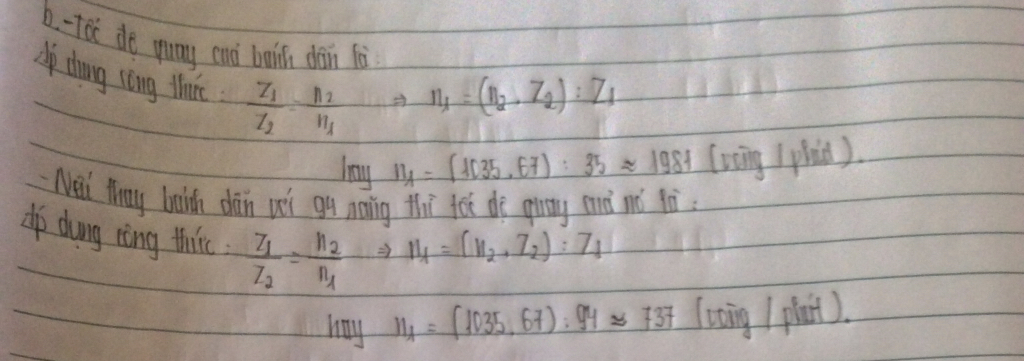 b.-Tốc độ quay của bánh dẫn là:
Áp dụng công thức: Z1/Z2 = n2/n1 ⇒ n1 = (n2 . Z2) : Z1
hay n1 = (1035.67) : 35 ≈ 1981 (vòng / phút).
-Nếu thay bánh dẫn với 94 răng thì tốc độ quay của nó là:
Áp dụng công thức: Z1/Z2 = n2/n1 ⇒ n1 = (n2 . Z2) : Z1
hay n1 = (1035.67) : 94 ≈ 737 (vòng / phút).